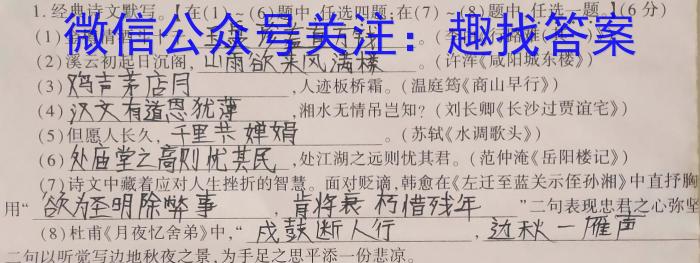 1. 经典诗文默写。【在(1)~(6)题中,任选四题;在(7)~(8)题中,任选一题。】(6分)
微信公众号关注:趣找答案
(2)溪云初起日沉阁,山雨欲来风满楼。(许浑《咸阳城东楼》)
(3)鸡声茅店月,人迹板桥霜。(温庭筠《商山早行》)
(4)汉文有道恩犹薄,湘水无情吊岂知?(刘长卿《长沙过贾谊宅》)
(5)但愿人长久,千里共婵娟。(苏轼《水调歌头》)
(6)处庙堂之高则忧其民,处江湖之远则忧其君。(范仲淹《岳阳楼记》)
(7)诗文中藏着应对人生挫折的智慧。面对贬谪,韩愈在《左迁至蓝关示侄孙湘》中直抒胸
用“欲为圣明除弊事,肯将衰朽惜残年”二句表现忠君之心弥坚
(8)杜甫《月夜忆舍弟》中,“戍鼓断人行,边秋一雁声
二句以听觉写边地秋夜之景,为手足之思平添一份悲凉。